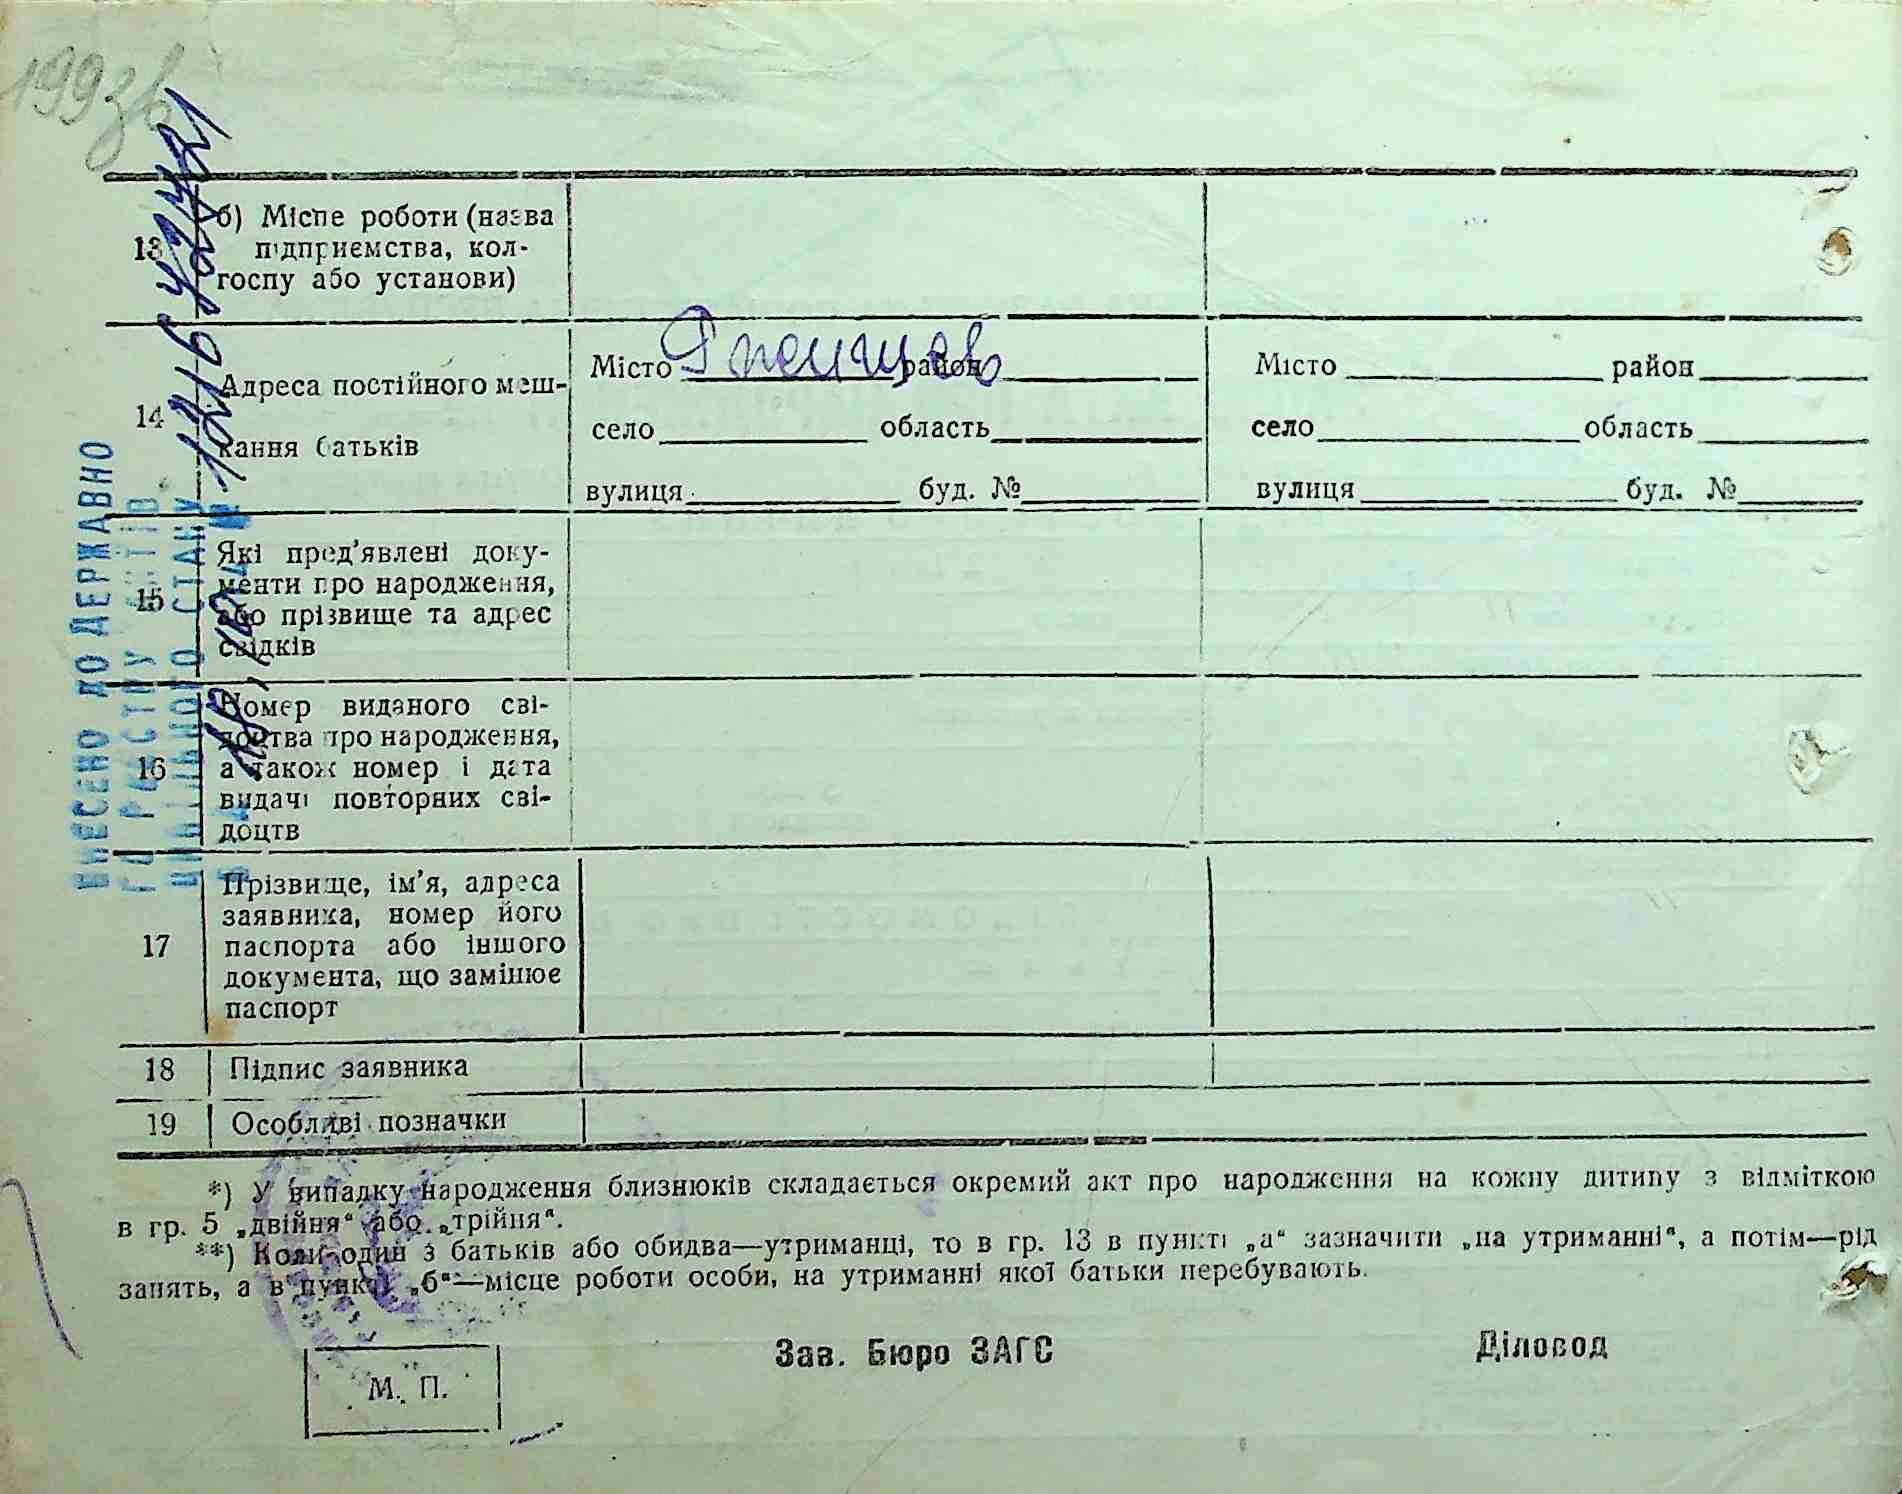 199зв
13
б) Місце роботи (назва
підприємства, кол-
госпу або установи)
14
Адреса постійного меш-
кання батьків
Місто район
село область
вулиця буд. №
Місто район
село область
вулиця буд. №
15
Які пред'явлені доку-
менти про народження,
або прізвище та адрес
свідків
16
Номер виданого сві-
доцтва про народження,
а також номер і дата
видачі повторних сві-
доцтв
17
Прізвище, ім'я, адреса
заявника, номер його
паспорта або іншого
документа, що замінює
паспорт
18 Підпис заявника
19 Особливі позначки
*) У випадку народження близнюків складається окремий акт про народження на кожну дитину з відміткою
в гр. 5 „двійня“ або „трійня“.
**) Коли один з батьків або обидва—утриманці, то в гр. 13 в пункті „а“ зазначити „на утриманні“, а потім—рід
занять, а в пункті „б“—місце роботи особи, на утриманні якої батьки перебувають.
Зав. Бюро ЗАГС Діловод
М. П.
ВНЕСЕНО ДО ДЕРЖАВНО
ГО РЕЄСТРУ АКТІВ
ЦИВІЛЬНОГО СТАНУ